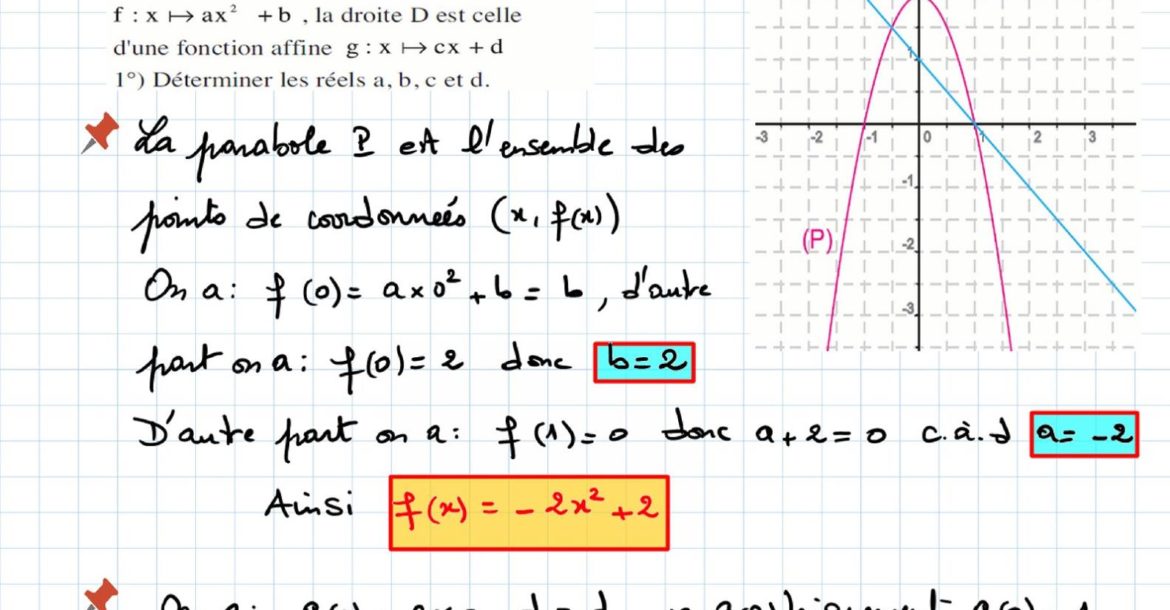 f : x ↦ ax² + b , la droite D est celle
d'une fonction affine g : x ↦ cx + d
1°) Déterminer les réels a, b, c et d.
La parabole P est l'ensemble des
points de coordonnées (x, f(x))
On a : f(0) = a×0² + b = b , d'autre
part on a : f(0) = 2 donc b = 2
D'autre part on a : f(1) = 0 donc a + 2 = 0 c.à.d a = -2
Ainsi f(x) = -2x² + 2
1
-3 -2 -1 0 1 2 3
-1
(P) -2
-3